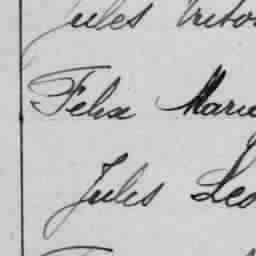 Jules
Felix Marie
Jules Leo